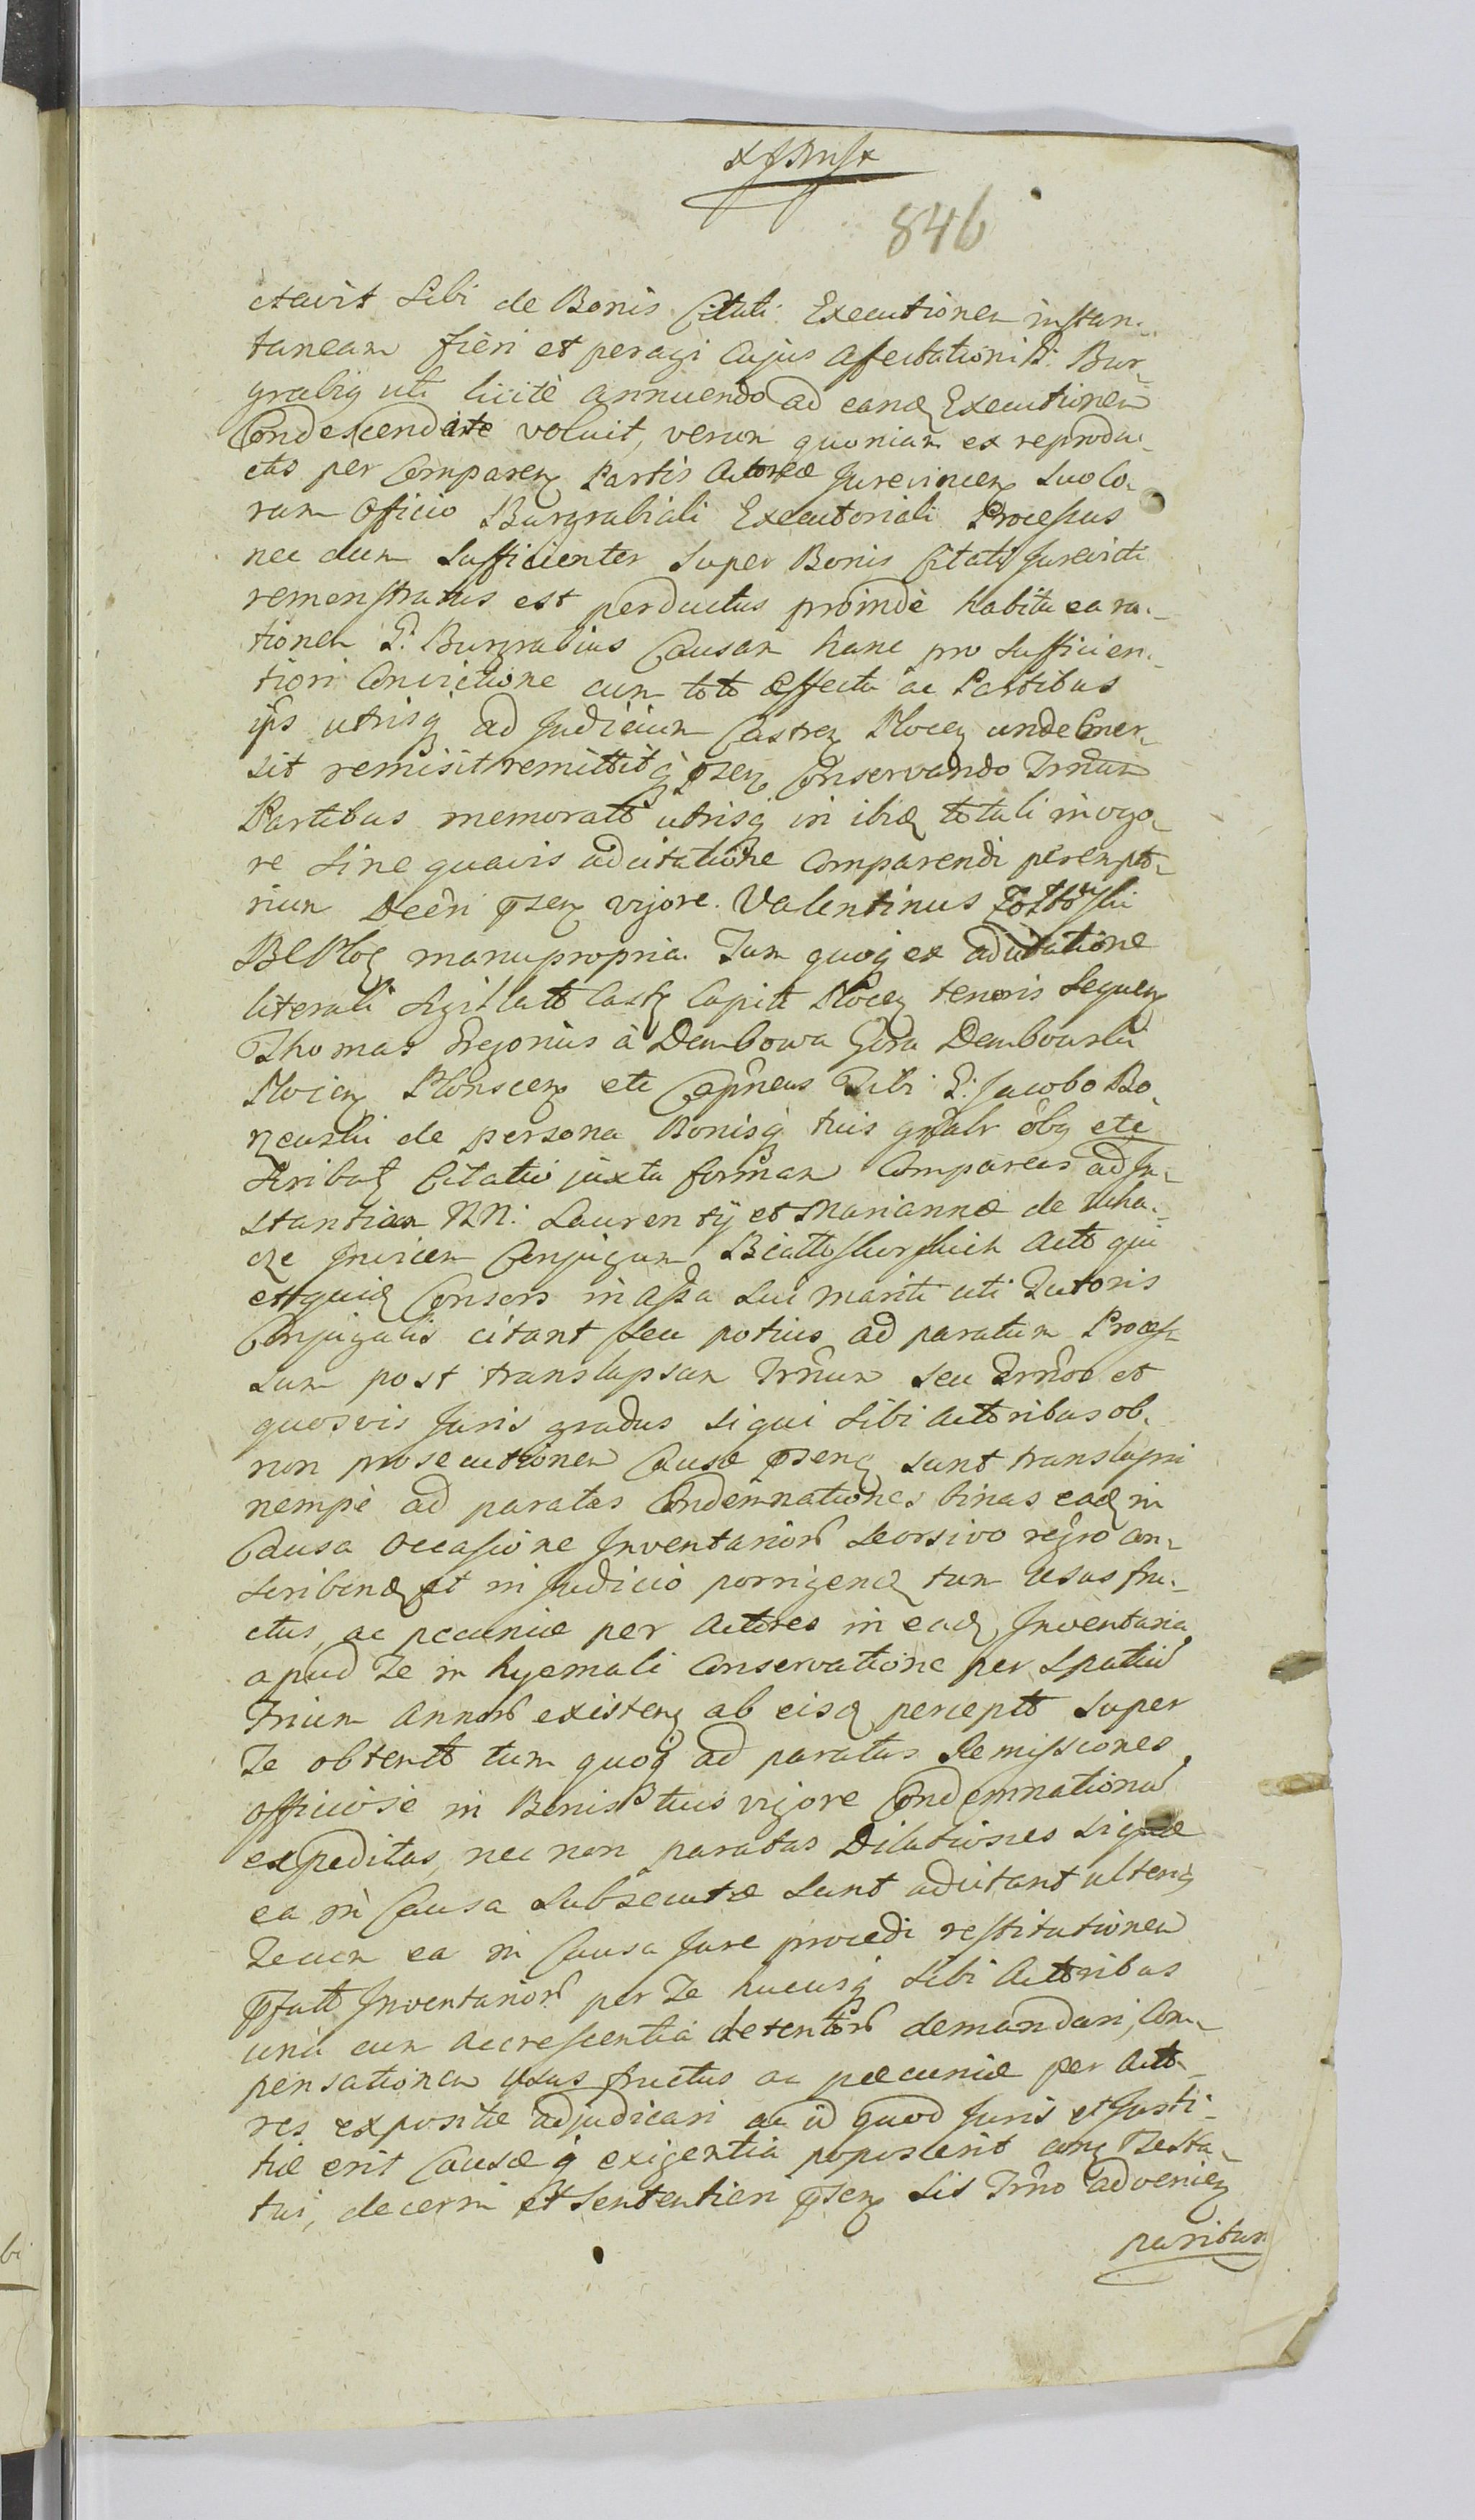 846
ctavit Sibi de Bonis Citati Executionem instan-
taneam fieri et peragi Cujus affectationi G: Bur-
grabiq uti licitè annuendo ad eandz Executionem
Condescendere voluit, verum quoniam ex reprodu-
ctis per Comparenz Partis Actoreæ Jurevincenz Suo Co-
ram Officio Burgrabiali Executoriali Processus
nec dum Sufficienter Super Bonis Citati Jurevicti
remonstratus est perductus proindè habita ea ra-
tionem G: Burgrabius Causam hanc pro Sufficien-
tiori Convictione cum toto effectu ac Partibus
ips utrisq ad Judicium Castrenz Plocenz unde Emer-
sit remisit remittitq pnsenz Conservando Trnum
Partibus memoratis utrisq in ibidz totali in vigo-
re Sine quavis adcitatione Comparendi perempto-
rium Decri pnsenz vigore. Valentinus
manupropria. Tum quoq ex adcitatione
literali Sigillato Castr Capit Plocenz tenoris Sequenz
Thomas Gregorius à Dembowa Gora Dembowski
Plocienz Plonscenz etc Capneus Tibi G: Jacobo Bo-
de persona Bonisq tuis gnalr obq etc
Scribatz Citatio juxta formam Compareas ad In-
stantiam NN: Laurentÿ et Mariannæ de Ucha-
cze Invicem Conjugum Acto qui
et quidz Consors in Assa Sui mariti uti Tutoris
Conjugalis citant Seu potius ad paratum Proces-
sum post translapsum Trnum seu Trnos et
quosvis Juris gradus Si qui Sibi Actoribus ob
non prosecutionem Causæ pnsenz sunt translapsi
nempè ad paratas Condemnationes binas eadz in
Causa Occasione Inventarior Seorsivo regro con-
scribendz et in Judicio porrigendz tum Usus fru-
ctus, ac pecuniæ per Actores in eadz Inventaria
apud Te in hyemali Conservatione per Spatiu
Trium Annor existenz ab eisdz percepto Super
Te obtento tum quoq ad paratas Remissiones
officiosè in Bonis tuis vigore Condemnationu
expeditas, nec non paratas Dilationes Si quæ
ea in Causa Subsecutæ Sunt adcitant ulteriq
Tecum ea in Causa Jure procedi restitutionem
pfatt Inventarior per Te hucusq Sibi Actoribus
unà cum Accrescentia detentor demandari, Com-
pensationem Usus fructus ac pecuniæ per Acto-
res expositæ adjudicari ac id quod Juris et Justi-
tiæ erit Causæq exigentia poposcerit
tui, decerni et Sententiari pnsenz Sis Trno advenienz
pariturus